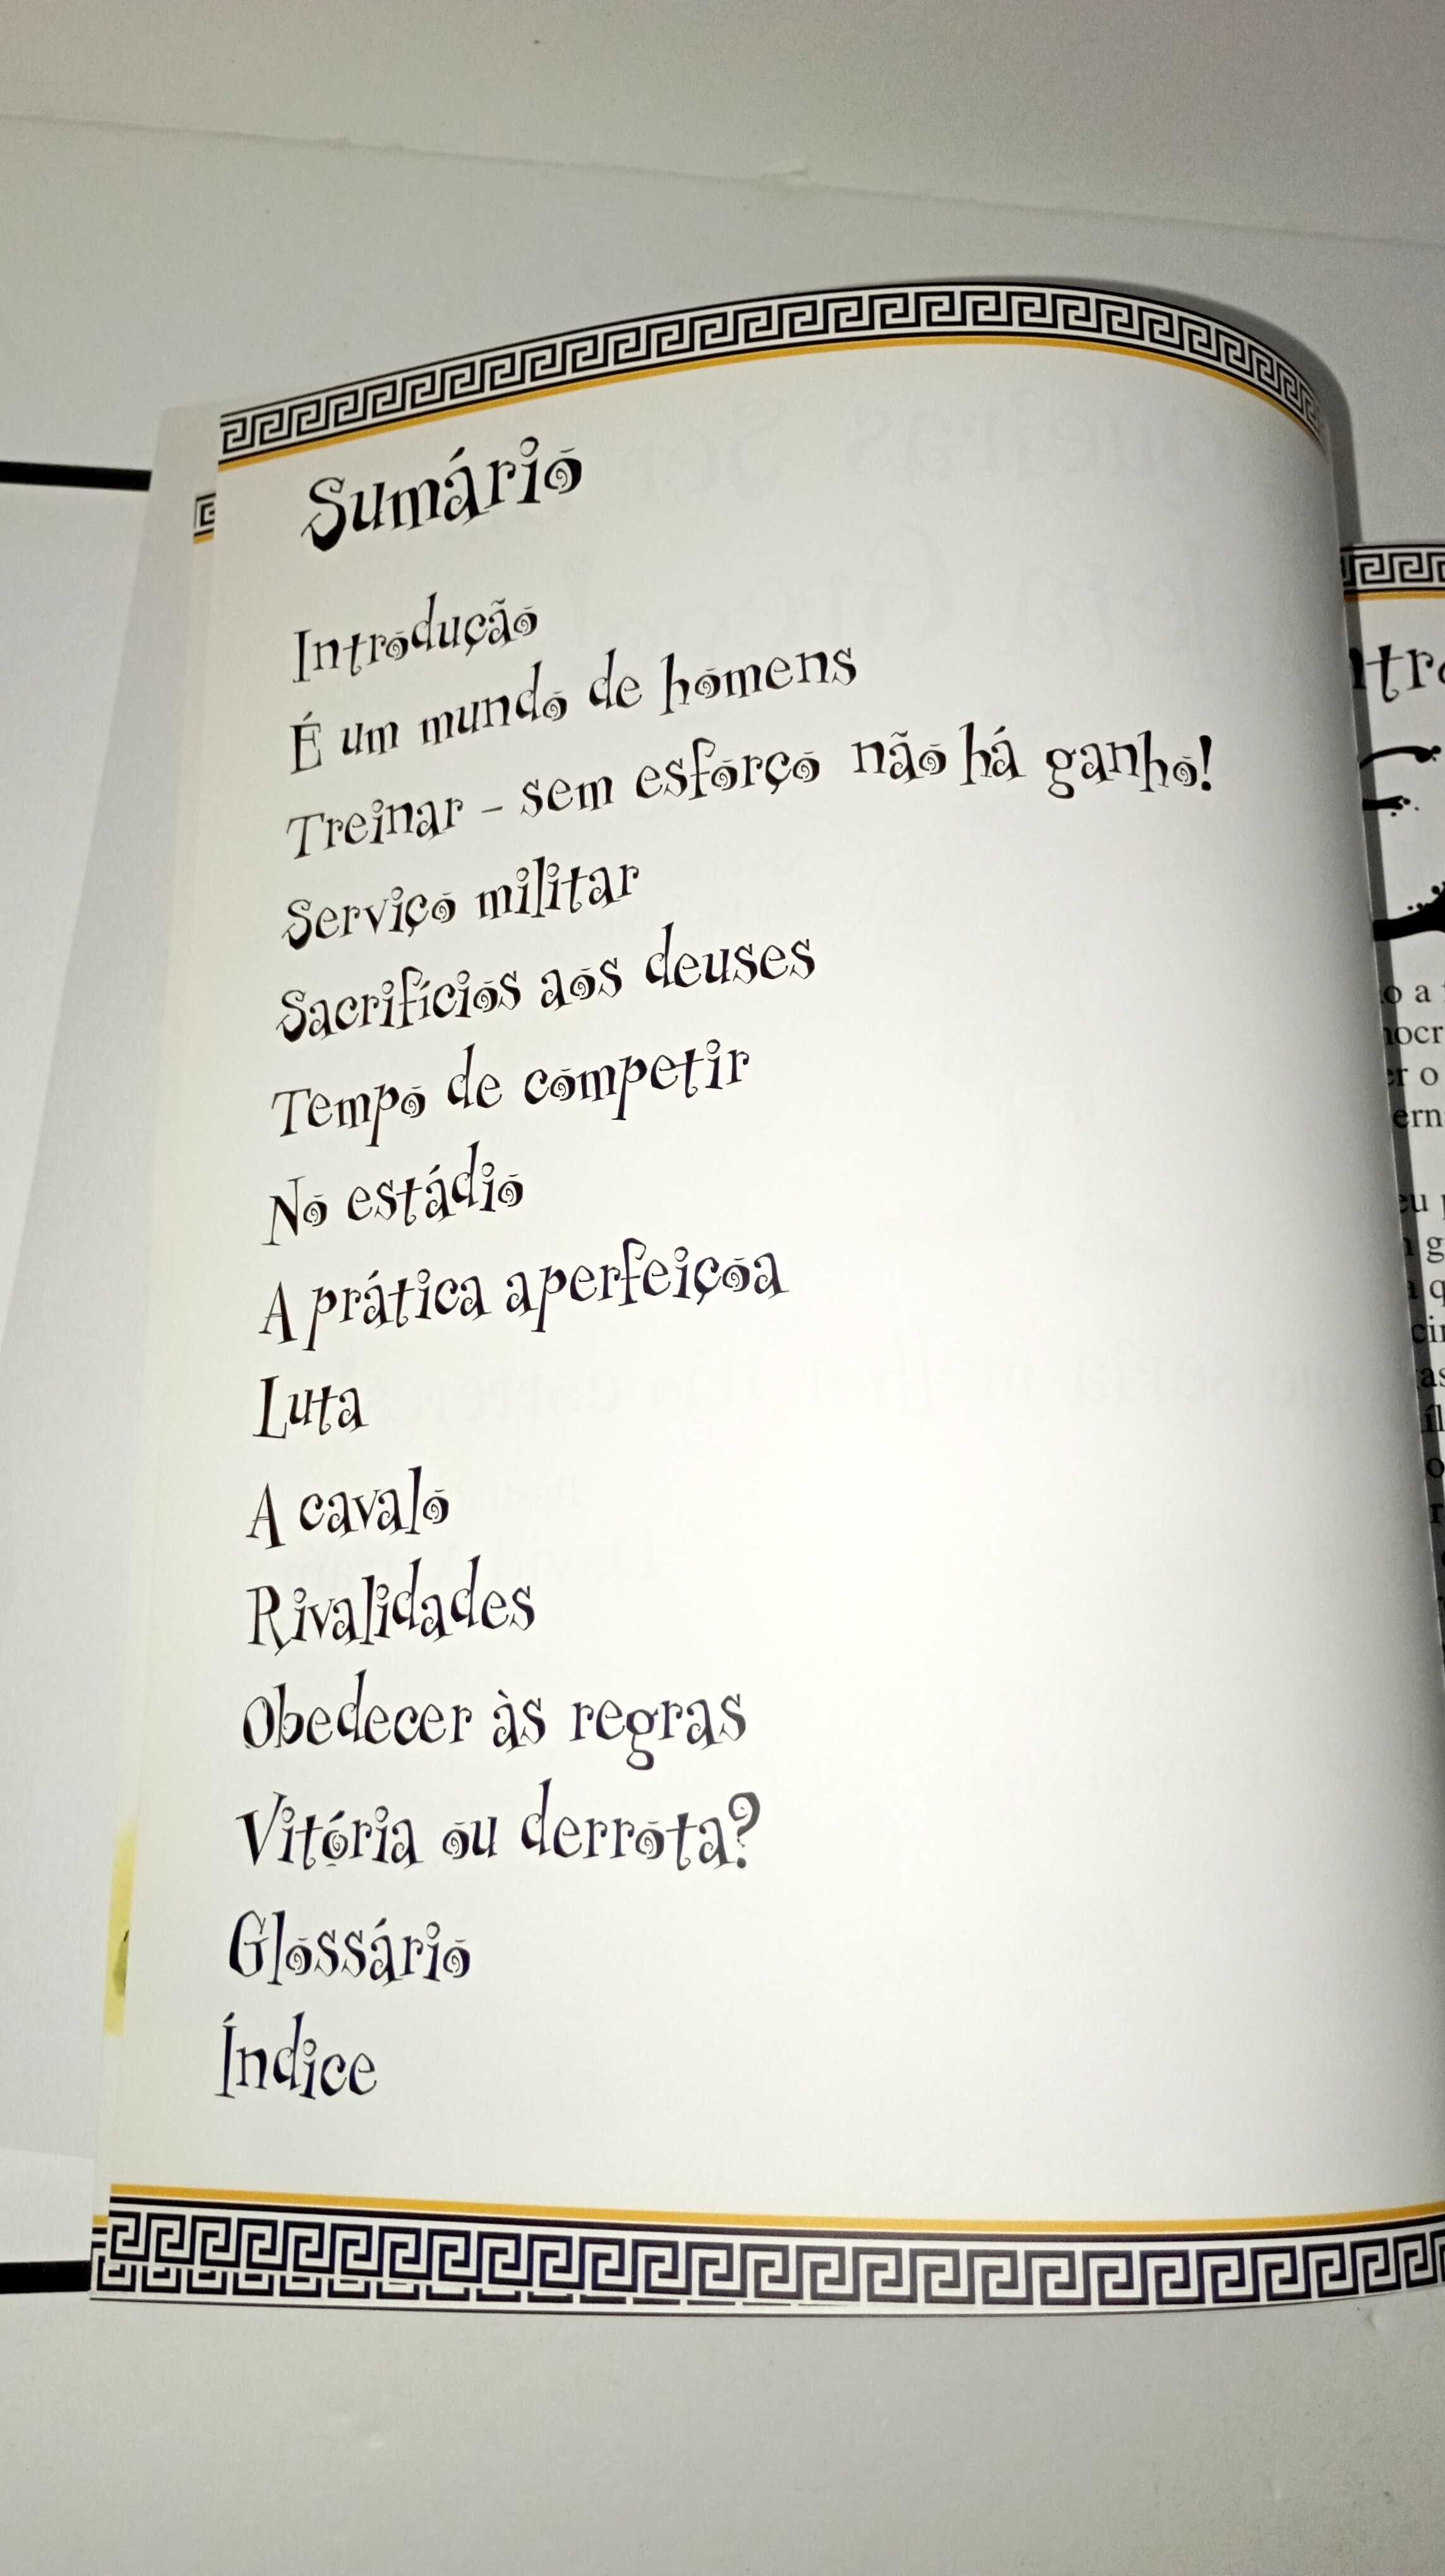 Sumário
Introdução
É um mundo de homens
Treinar - sem esforço não há ganho!
Serviço militar
Sacrifícios aos deuses
Tempo de competir
No estádio
A prática aperfeiçoa
Luta
A cavalo
Rivalidades
Obedecer às regras
Vitória ou derrota?
Glossário
Índice